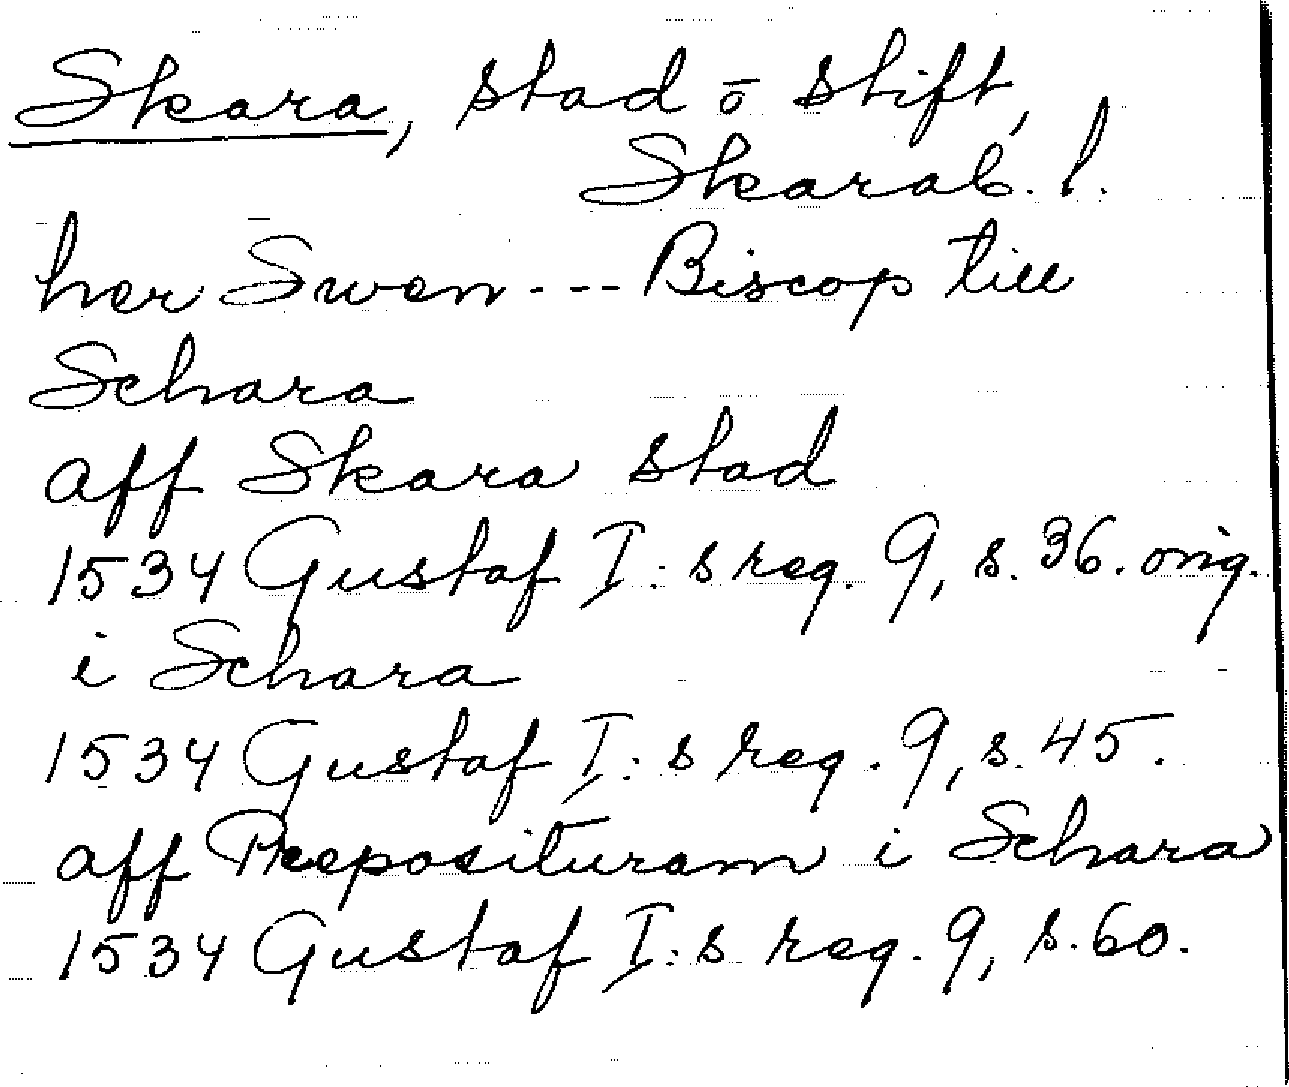 Skara, stad o stift,
Skarab. l.
her Swen --- Biscop till
Schara
aff Skara stad
1534 Gustaf I:s reg. 9, s. 36. orig.
i Schara
1534 Gustaf I:s reg. 9, s. 45.
aff Preposituram i Schara
1534 Gustaf I:s reg. 9, s. 60.